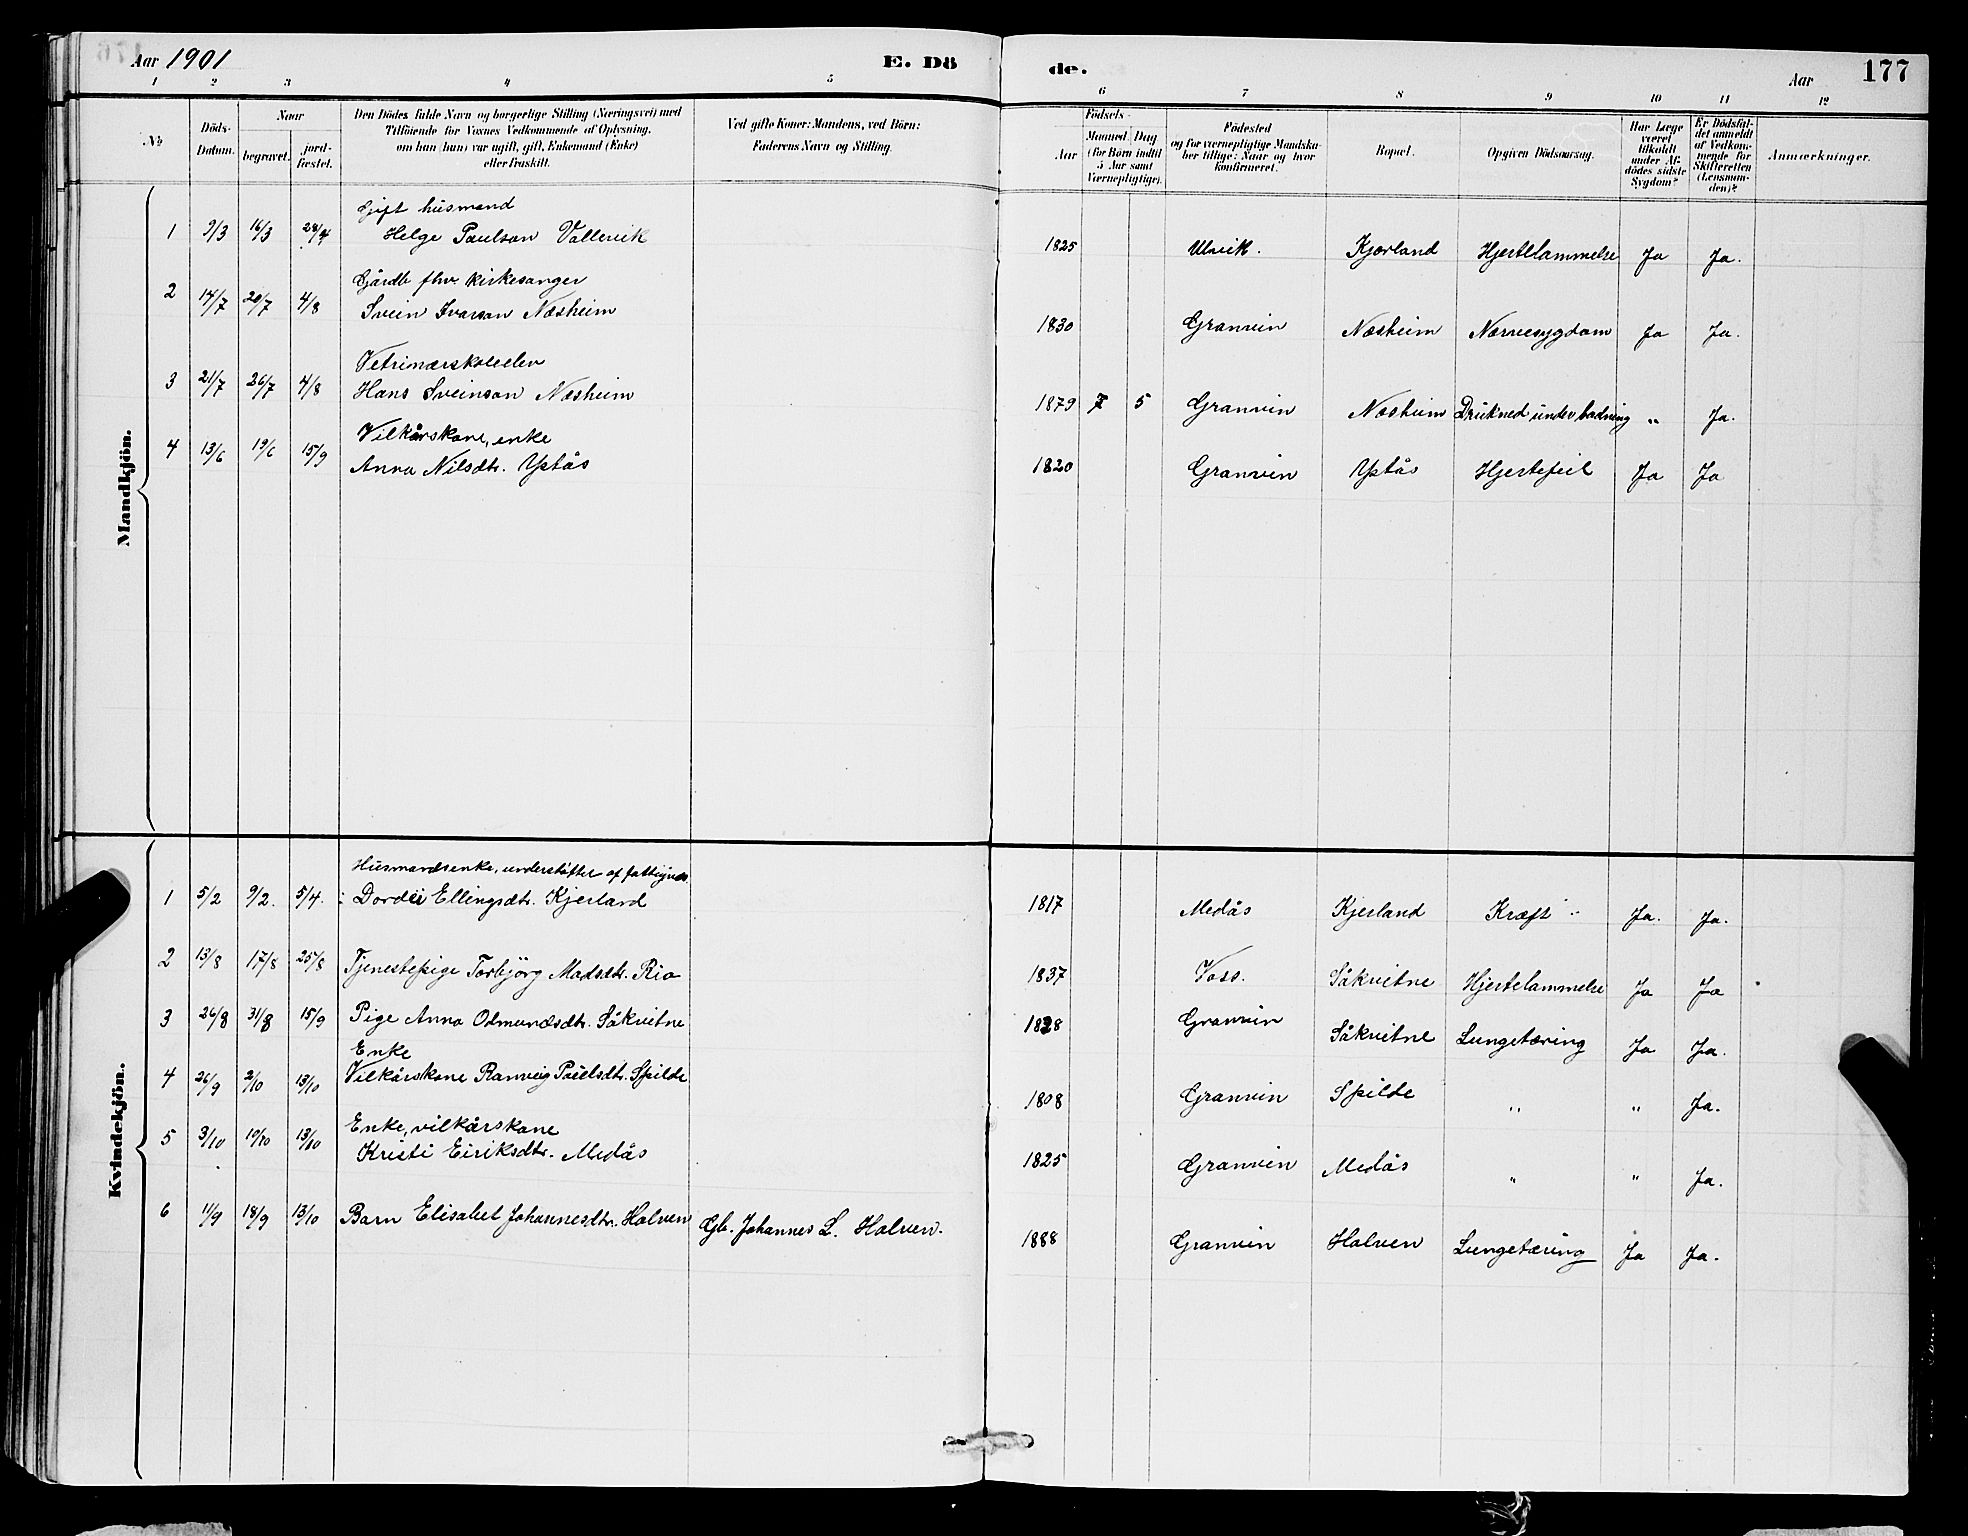 Aar 1901
E. Dö
de.
Aar
177
1 2 3 4 5 6 7 8 9 10 11 12
No
Döds-Datum.
Naar
begravet.
jord-fæstet.
Den Dödes fulde Navn og borgerlige Stilling (Næringsvei) med
Tilföiende for Voxnes Vedkommende af Oplysning,
om han (hun) var ugift, gift, Enkemand (Enke)
eller fraskilt.
Ved gifte Koner: Mandens, ved Börn:
Faderens Navn og Stilling.
Födsels-
Aar
Maaned
Dag
(for Börn indtil
5 Aar samt
Værnepligtige).
Födested
og for værnepligtige Mandska-
ber tillige: Naar og hvor
konfirmeret.
Bopæl.
Opgiven Dödsaarsag.
Har Læge
været
tilkaldt
under Af-
dödes sidste
Sygdom?
Er Dödsfal-
det anmeldt
af Vedkom-
mende for
Skifteretten
(Lensman-
den)?
Anmærkninger.
Mandkjön.
Gift husmand
1 9/3 16/3 28/4 Helge Paulson Vallevik 1825 Ulvik. Kjærland Hjertelammelse Ja Ja.
Gårdb fhv. kirkesanger
2 14/7 20/7 4/8 Svein Ivarson Næsheim 1830 Granvin Næsheim Nærvesygdom Ja Ja.
Vetrinærskoleelev
3 21/7 26/7 4/8 Hans Sveinson Næsheim 1879 7 5 Granvin Næsheim Drukned under badning " Ja.
Vilkårskone, enke
4 13/6 19/6 15/9 Anna Nilsdtr. Ystås 1820 Granvin Ystås Hjertefeil Ja Ja
Kvindekjön.
Husmandsenke, understøttet af fattigvæs.
1 5/2 9/2. 5/4. Dordei Ellingsdtr. Kjerland 1817 Medås Kjerland Kræft Ja. Ja.
2 13/8 17/8 25/8 Tjenestepige Torbjörg Madsdtr. Rio 1837 Voss. Såkvitne Hjertelammelse Ja Ja
3 26/8 31/8 15/9 Pige Anna Odmundsdtr. Såkvitne 1828 Granvin Såkvitne Lungetæring Ja Ja.
Enke
4 26/9 2/10 13/10 Vilkårskone Ranveig Paulsdtr. Spilde 1808 Granvin Spilde " " Ja.
Enke, vilkårskone
5 3/10 10/10 13/10 Kristi Eiriksdtr. Medås 1825 Granvin Medås " " Ja.
6 11/9 18/9 13/10 Barn Elisabet Johannesdtr. Holven Gb. Johannes L. Holven. 1888 Granvin Holven Lungetæring Ja Ja.